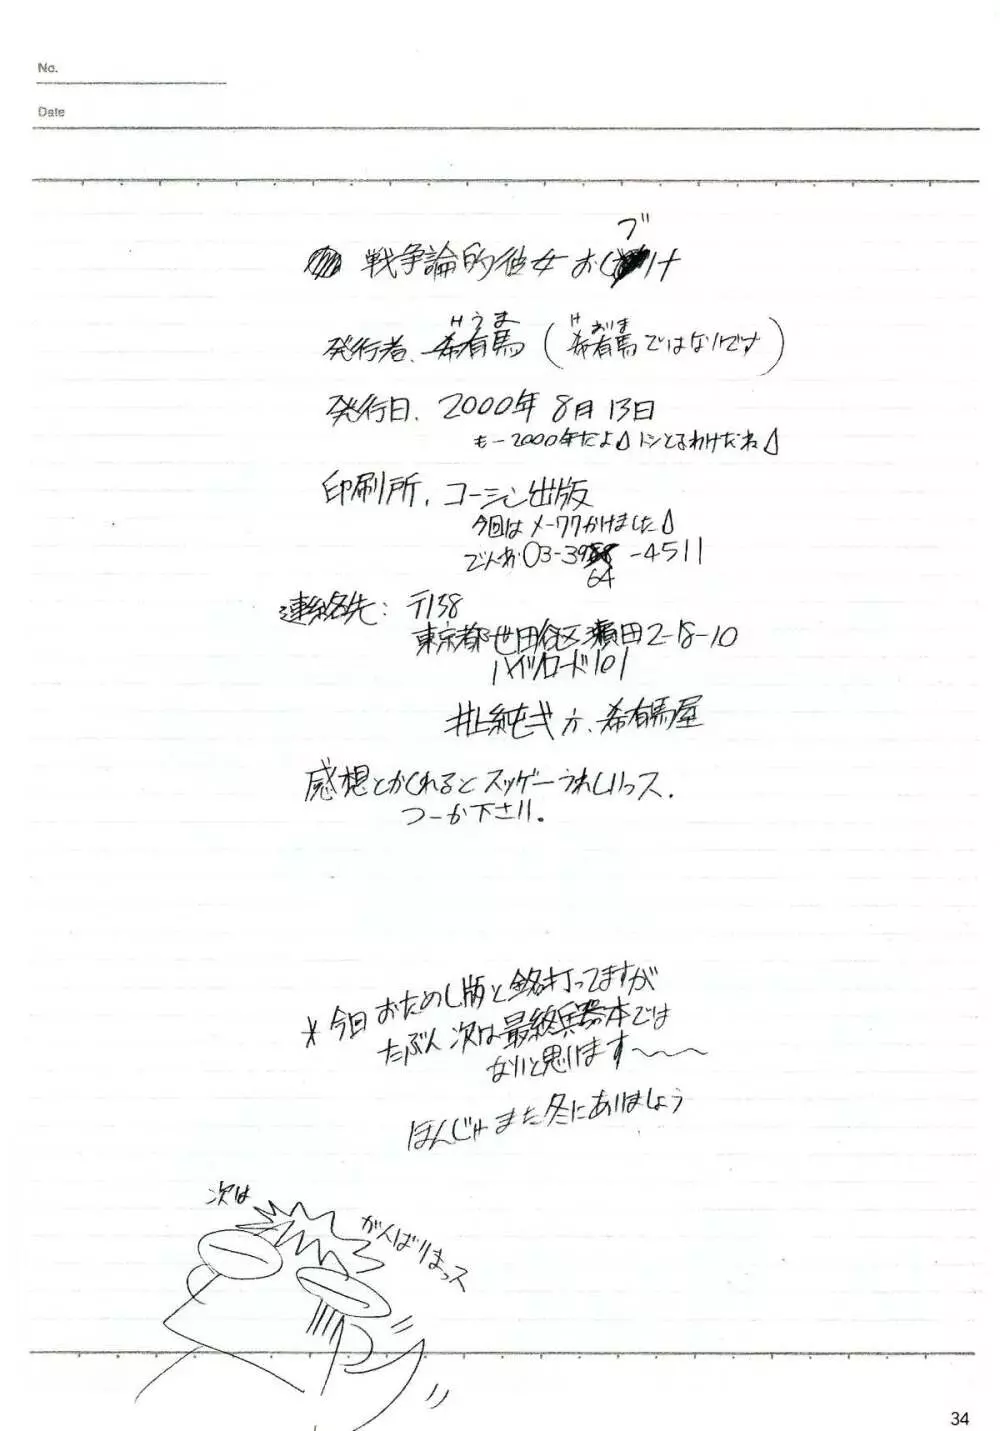 No.
Date
ブ
戦争論的彼女 お け
けうま
発行者、希有馬 (希有馬ではないです)
発行日、2000年 8月 13日
もー2000年だよ トシとるわけだね
印刷所、コーシン出版
今回はメーワクかけました
でんわ 03-39 -4511
64
連絡先: 〒158
東京都世田谷区瀬田2-18-10
ハイツロード101
井上純弌方、希有馬屋
感想とかくれるとスッゲーうれしいっス.
つーか下さい。
*今回おためし版と銘打ってますが
たぶん次は最終兵器本では
ないと思います〜〜〜
ほんじゃまた冬にあいましょう
次は
がんばりまっス
34